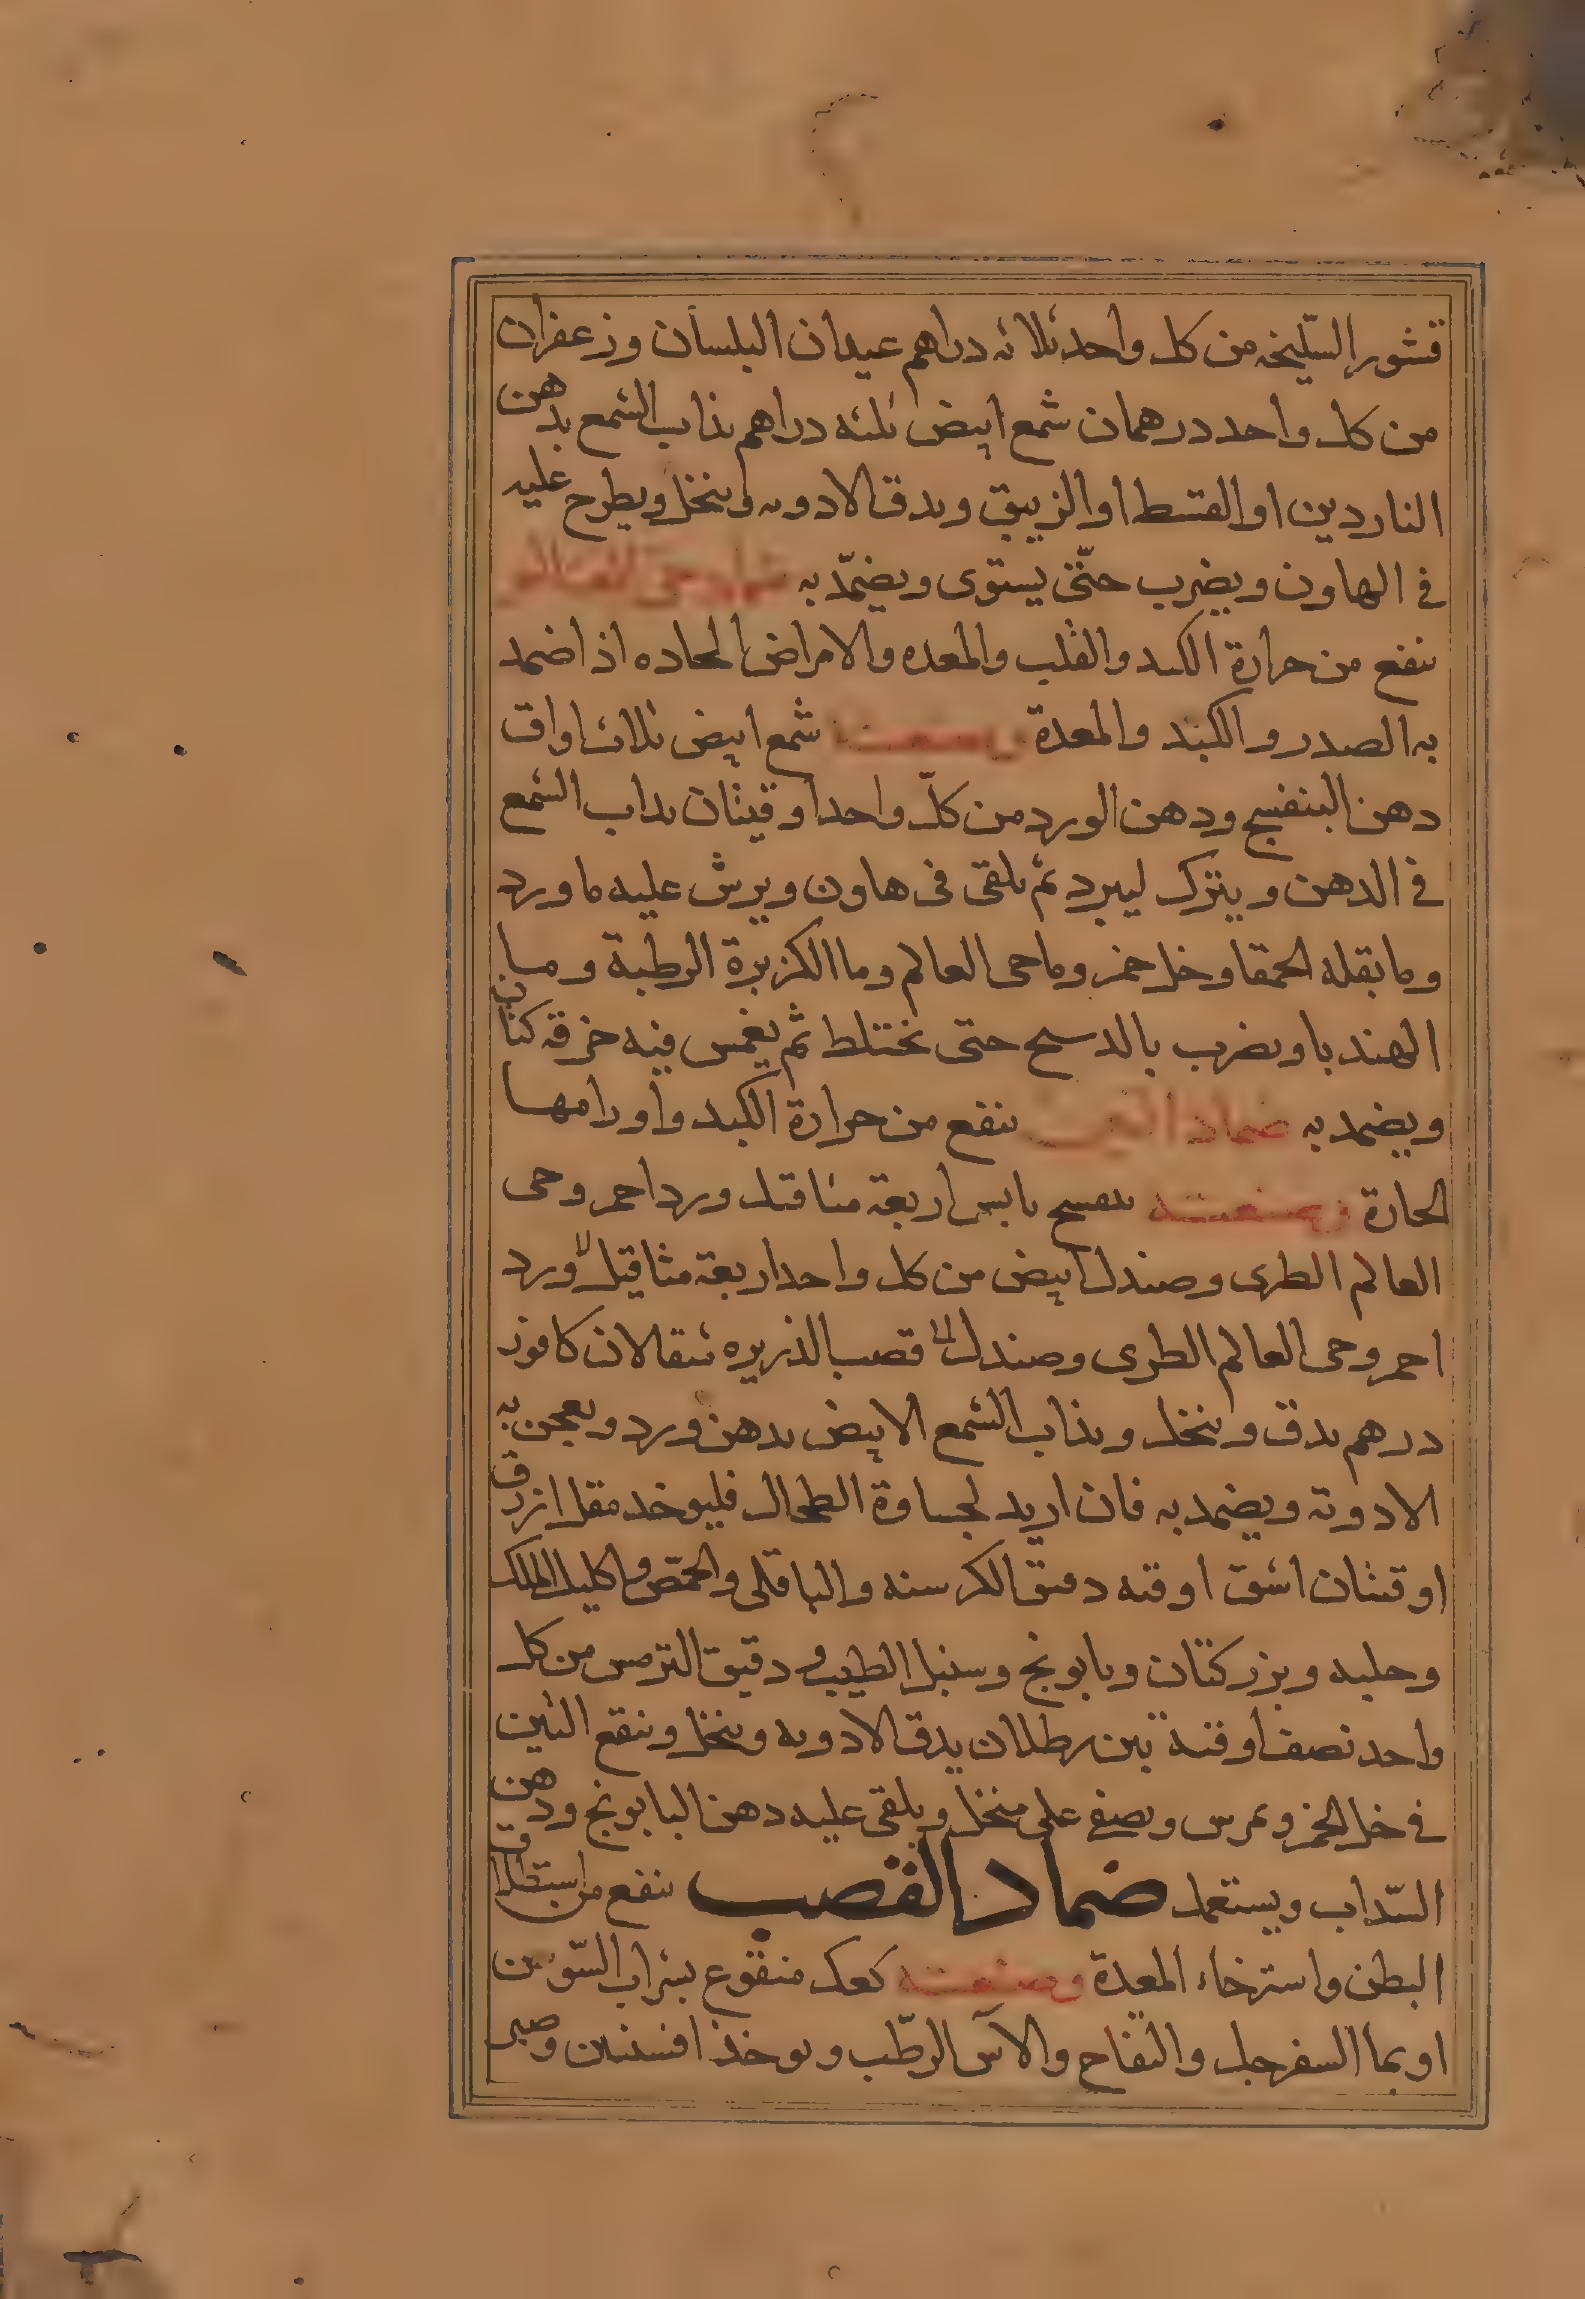 قشور السّليخه من كل واحد ثلاثه دراهم عيدان البلسان وزعفران
من كل واحد درهمان شمع ابيض ثلثه دراهم يذاب الشمع بدهن
الناردين او القسط او الزيبق ويدق الادويه وينخل ويطرح عليه
في الهاون ويضرب حتّى يستوى ويضمّد به ضماد حى العالم
ينفع من حرارة الكبد والقلب والمعده والامراض الحاده اذا ضمد
به الصدر والكبد والمعدة وصنعته شمع ابيض ثلاث اواق
دهن البنفسج ودهن الورد من كلّ واحد اوقيتان يداب الشمع
في الدهن ويترك ليبرد ثم يلقى فى هاون ويرش عليه ما ورد
وما بقله الحمقا وخل خمر وما حى العالم وما الكزبرة الرطبة وما
الهندبا ويضرب بالدستج حتى يختلط ثم يغمس فيه خرقه كتان
ويضمد به ضماد ينفع من حرارة الكبد واورامها
الحارة وصنعته بنفسج يابس اربعة مثاقيل ورد احمر وحى
العالم الطرى وصندل ابيض من كل واحد اربعة مثاقيل ورد
احمر وحى العالم الطرى وصندل قصب الذريره مثقالان كافور
درهم يدق وينخل ويذاب الشمع الابيض بدهن ورد ويعجن به
الادوية ويضمد به فان اريد لجساوة الطحال فليوخد مقل ازرق
اوقيتان اشق اوقيه دقيق الكرسنه والباقلى والحمّص واكليل الملك
وحلبه وبزر كتّان وبابونج وسنبل الطيب و دقيق الترمس من كل
واحد نصف اوقية تين رطلان يدق الادويه وينخل وينقع التين
في خل الخمر ويمرس ويصفى على منخل ويلقى عليه دهن البابونج ودهن
السّداب ويستعمل ضماد القصب ينفع من استطلاق
البطن واسترخاء المعدة وصنعته كعك منقوع بشراب السّوسن
او بما السفرجل والتفاح والاس الرطّب ويوخذ افسنتين وصبر